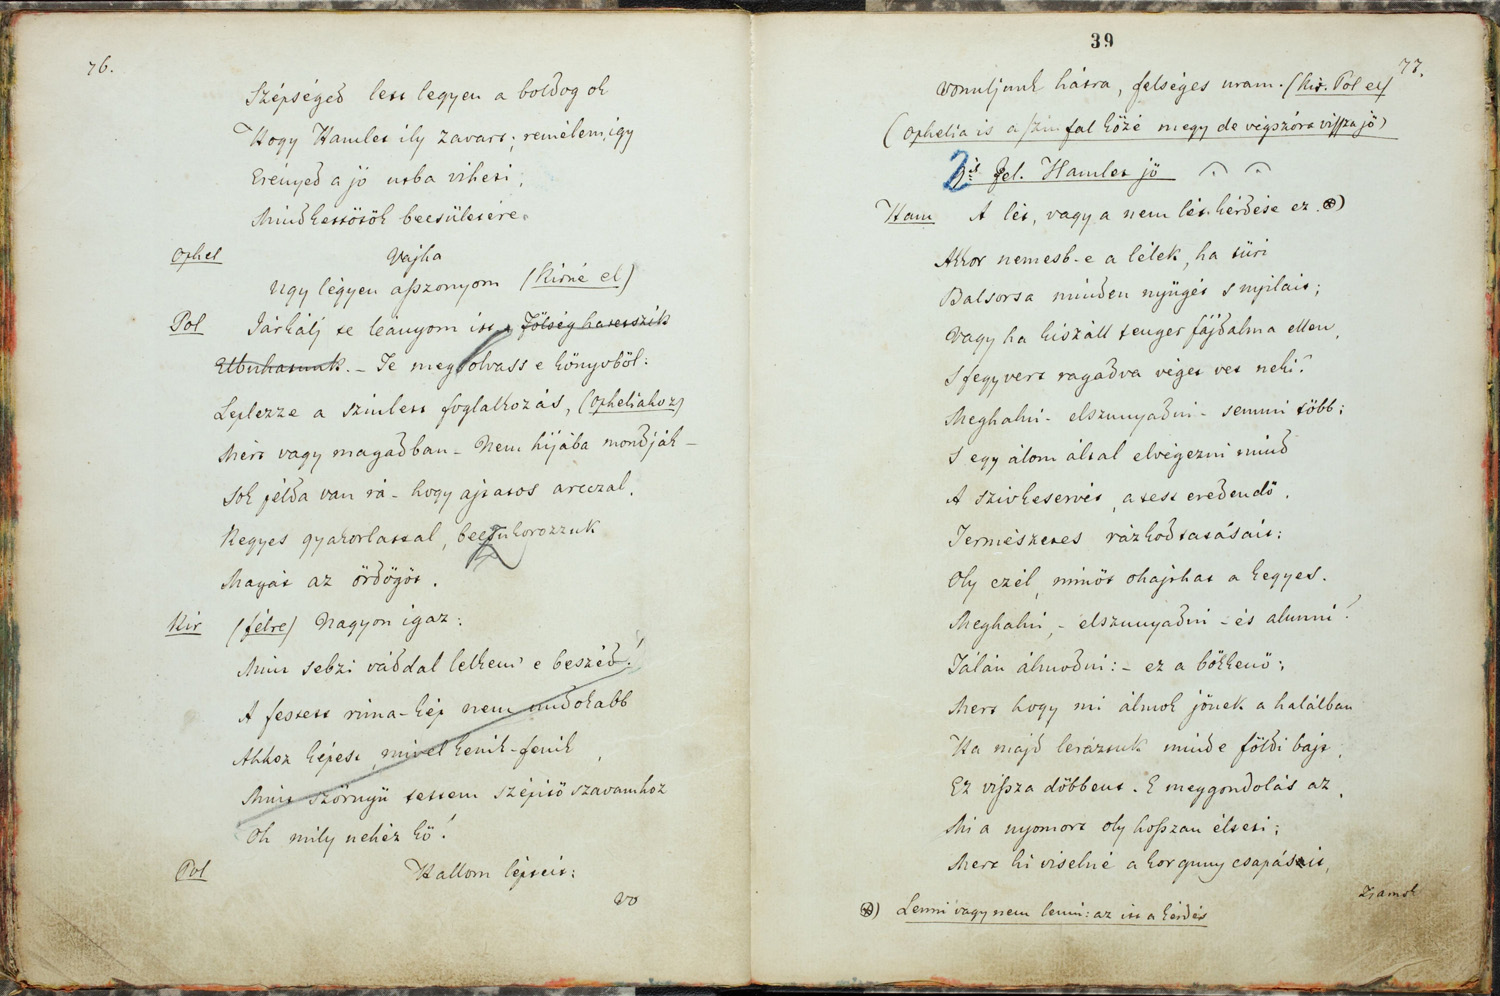 76.
Szépséged lett legyen a boldog ok
Hogy Hamlet ily zavart; remélem, így
Erényed a jó utba viheti;
Mindkettőtök becsületére.
Ophel Vajha
Ugy légyen aszszonyom (Kirné el)
Pol Járkálj te leányom itt, Fölség ha tetszik
Elbuhatunk. – Te meg olvass e könyvből:
Leplezze a szinlett foglalkozás, (Opheliahoz)
Mért vagy magadban – Nem hijába mondják –
Sok példa van rá – hogy ajtatos arczal,
Kegyes gyakorlattal, becsukorozzuk
Magát az ördögöt.
Kir (félre) Nagyon igaz:
Mint sebzi váddal lelkem' e beszéd!
A festett rima-kép nem undokabb
Ahhoz képest, mivel kenik-fenik,
Mint szörnyü tettem szépitő szavamhoz
Oh mily nehéz kő!
Pol Hallom lépteit:
Vo
39
77.
Vonuljunk hátra, felséges uram. (Kir. Pol el)
(Ophelia is a szinfal közé megy de végszóra viszsza jő)
2ik Jel. Hamlet jő
Ham A lét, vagy a nem lét kérdése ez. *)
Akkor nemesb-e a lélek, ha tűri
Balsorsa minden nyügét s nyilait;
Vagy ha kiszáll tenger fájdalma ellen,
S fegyvert ragadva véget vet neki?
Meghalni – elszunyadni – semmi több;
S egy álom által elvégezni mind
A szivkeservét, a test eredendő,
Természetes rázkodtatásait:
Oly czél, minőt ohajthat a kegyes.
Meghalni, – elszunyadni – és alunni!
Talán álmodni: – ez a bökkenő;
Mert hogy mi álmok jőnek a halálban
Ha majd leráztuk mind e földi bajt,
Ez viszsza döbbent. E meggondolás az,
Mi a nyomort oly hoszszan élteti;
Mert ki viselné a kor gúny csapásait,
Zsarnok
*) Lenni vagy nem lenni: az itt a kérdés